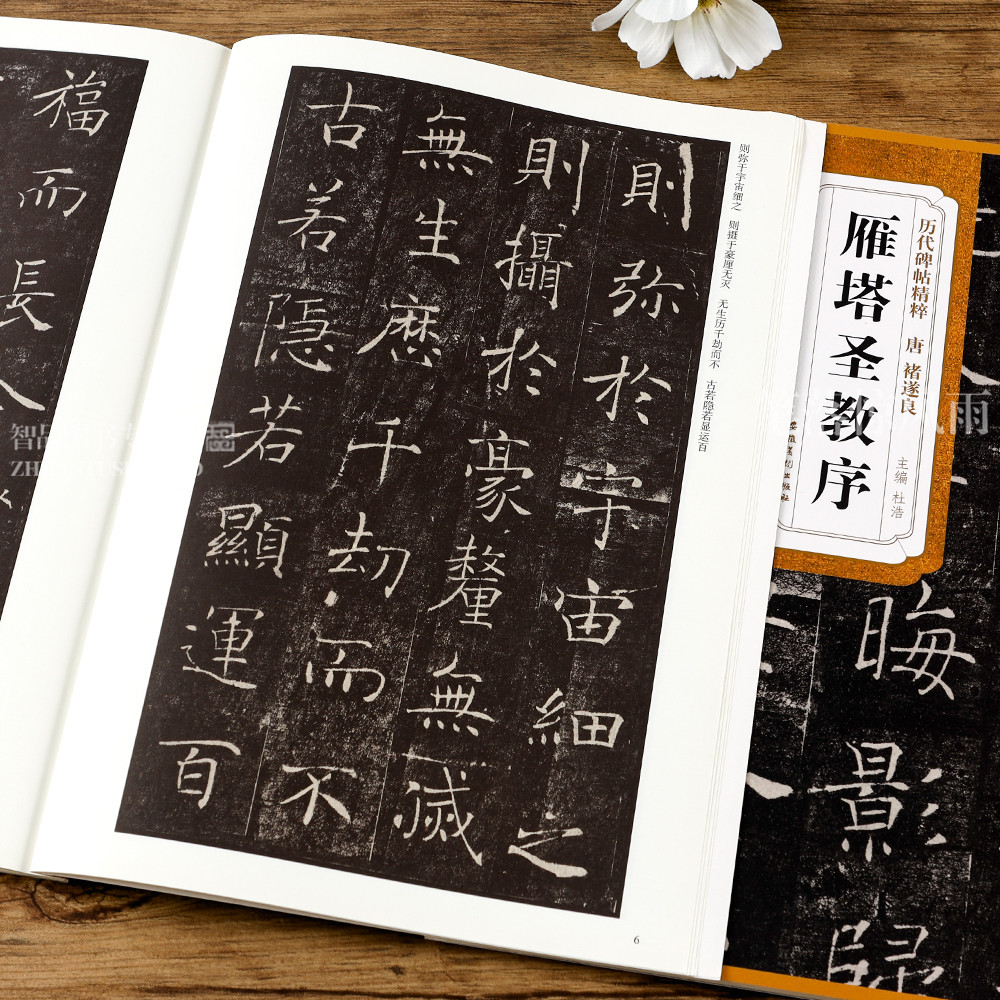 則弥於宇宙細之
則攝於豪釐無滅
無生歷千劫而不
古若隱若顯運百
则弥于宇宙细之 则摄于豪厘无灭 无生历千劫而不 古若隐若显运百
6
福而長
历代碑帖精粹 唐 褚遂良
雁塔圣教序
主编 杜浩
安徽美术出版社
晦影歸